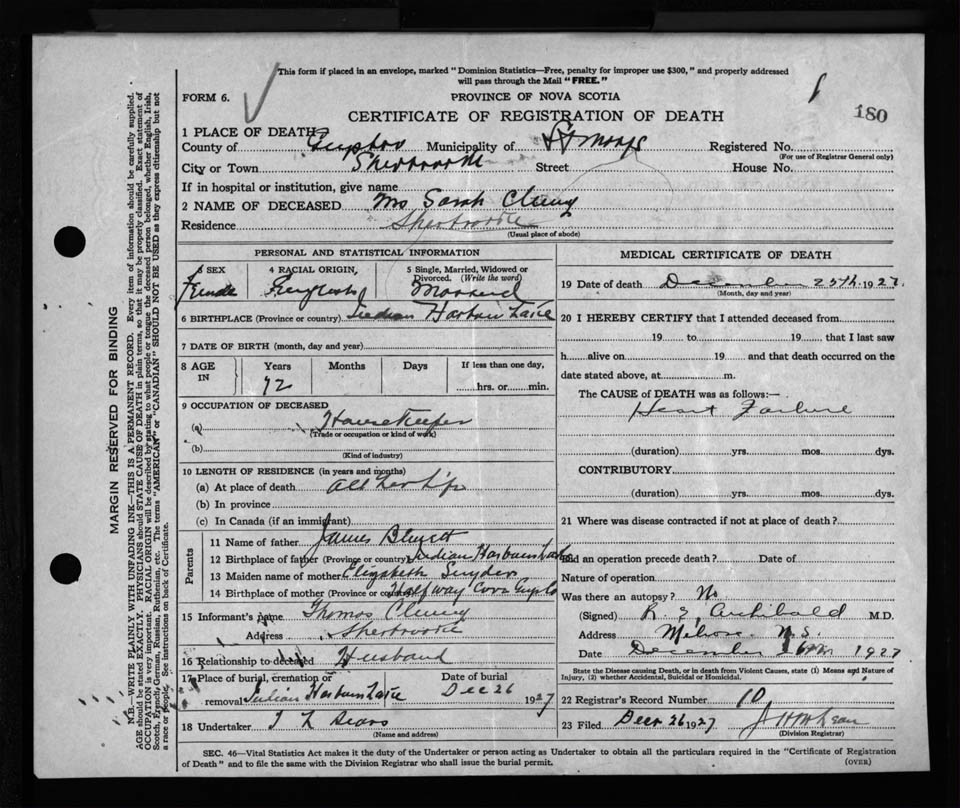 This form if placed in an envelope, marked "Dominion Statistics—Free, penalty for improper use $300," and properly addressed
will pass through the Mail "FREE."
FORM 6.
PROVINCE OF NOVA SCOTIA
180
CERTIFICATE OF REGISTRATION OF DEATH
1 PLACE OF DEATH
County of Guysboro Municipality of St Marys Registered No.
(For use of Registrar General only)
City or Town Sherbrooke Street House No.
If in hospital or institution, give name
2 NAME OF DECEASED Mrs Sarah
Residence Sherbrooke
(Usual place of abode)
PERSONAL AND STATISTICAL INFORMATION
3 SEX
Female
4 RACIAL ORIGIN,
English
5 Single, Married, Widowed or
Divorced. (Write the word)
Married
6 BIRTHPLACE (Province or country) Indian Harbour Lake
7 DATE OF BIRTH (month, day and year)
8 AGE
IN
Years
72
Months
Days
If less than one day,
hrs. or min.
9 OCCUPATION OF DECEASED
(a) Housekeeper
(Trade or occupation or kind of work)
(b)
(Kind of industry)
10 LENGTH OF RESIDENCE (in years and months)
(a) At place of death All her life
(b) In province
(c) In Canada (if an immigrant)
Parents
11 Name of father James
12 Birthplace of father (Province or country) Indian Harbour Lake
13 Maiden name of mother Elizabeth Snyder
14 Birthplace of mother (Province or country) Halfway Cove Guysboro
15 Informant's name Thomas
Address Sherbrooke
16 Relationship to deceased Husband
17 Place of burial, cremation or
removal Indian Harbour Lake
Date of burial
Dec 26 1927
18 Undertaker
(Name and address)
MEDICAL CERTIFICATE OF DEATH
19 Date of death December 25th 1927
(Month, day and year)
20 I HEREBY CERTIFY that I attended deceased from
19 to 19 that I last saw
h alive on 19 and that death occurred on the
date stated above, at m.
The CAUSE of DEATH was as follows:—
Heart Failure
(duration) yrs. mos. dys.
CONTRIBUTORY
(duration) yrs. mos. dys.
21 Where was disease contracted if not at place of death?
Did an operation precede death? Date of
Nature of operation
Was there an autopsy? No
(Signed) R E Archibald M.D.
Address Melrose N.S.
Date December 26th 1927
State the Disease causing Death, or in death from Violent Causes, state (1) Means and Nature of
Injury, (2) whether Accidental, Suicidal or Homicidal.
22 Registrar's Record Number 10
23 Filed Decr 26 1927
(Division Registrar)
SEC. 46—Vital Statistics Act makes it the duty of the Undertaker or person acting as Undertaker to obtain all the particulars required in the "Certificate of Registration
of Death" and to file the same with the Division Registrar who shall issue the burial permit.
(OVER)
MARGIN RESERVED FOR BINDING
N.B.—WRITE PLAINLY WITH UNFADING INK—THIS IS A PERMANENT RECORD. Every item of information should be carefully supplied.
AGE should be stated EXACTLY. PHYSICIANS should STATE CAUSE OF DEATH in plain terms, so that it may be properly classified. Exact statement of
OCCUPATION is very important. RACIAL ORIGIN will be described by stating to what people or tongue the deceased person belonged, whether English, Irish,
Scotch, French, German, Russian, Ruthenian, etc. The terms "AMERICAN" or "CANADIAN" SHOULD NOT BE USED as they express citizenship but not
a race or people. See instructions on back of Certificate.